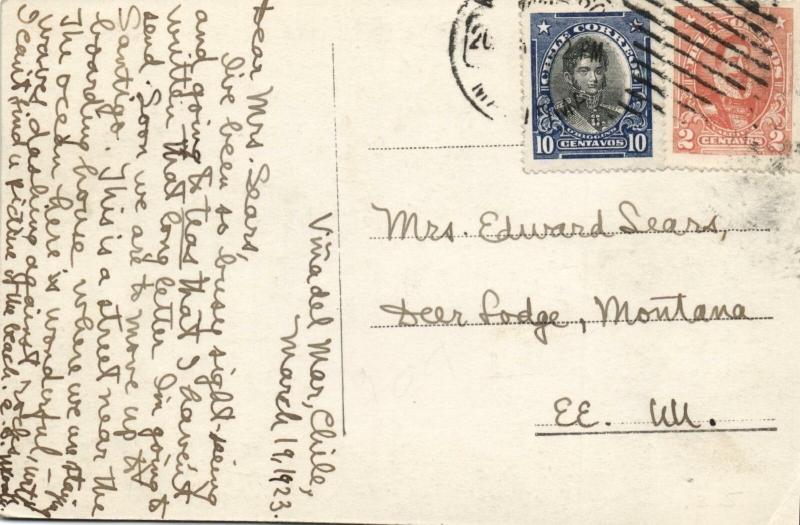 Viña del Mar, Chile,
March 19, 1923.
Dear Mrs. Sears,
I've been so busy sight-seeing
and going to teas that I haven't
written that long letter I'm going to
send. Soon we are to move up to
Santigo. This is a street near the
boarding house where we are staying
The ocean here is wonderful –
waves dashing against rocks, but
I can't find a picture of the beach.
CHILE CORREOS
O'HIGGINS
10 CENTAVOS 10
2 CENTAVOS 2
Mrs. Edward Sears,
Deer Lodge, Montana
EE. UU.